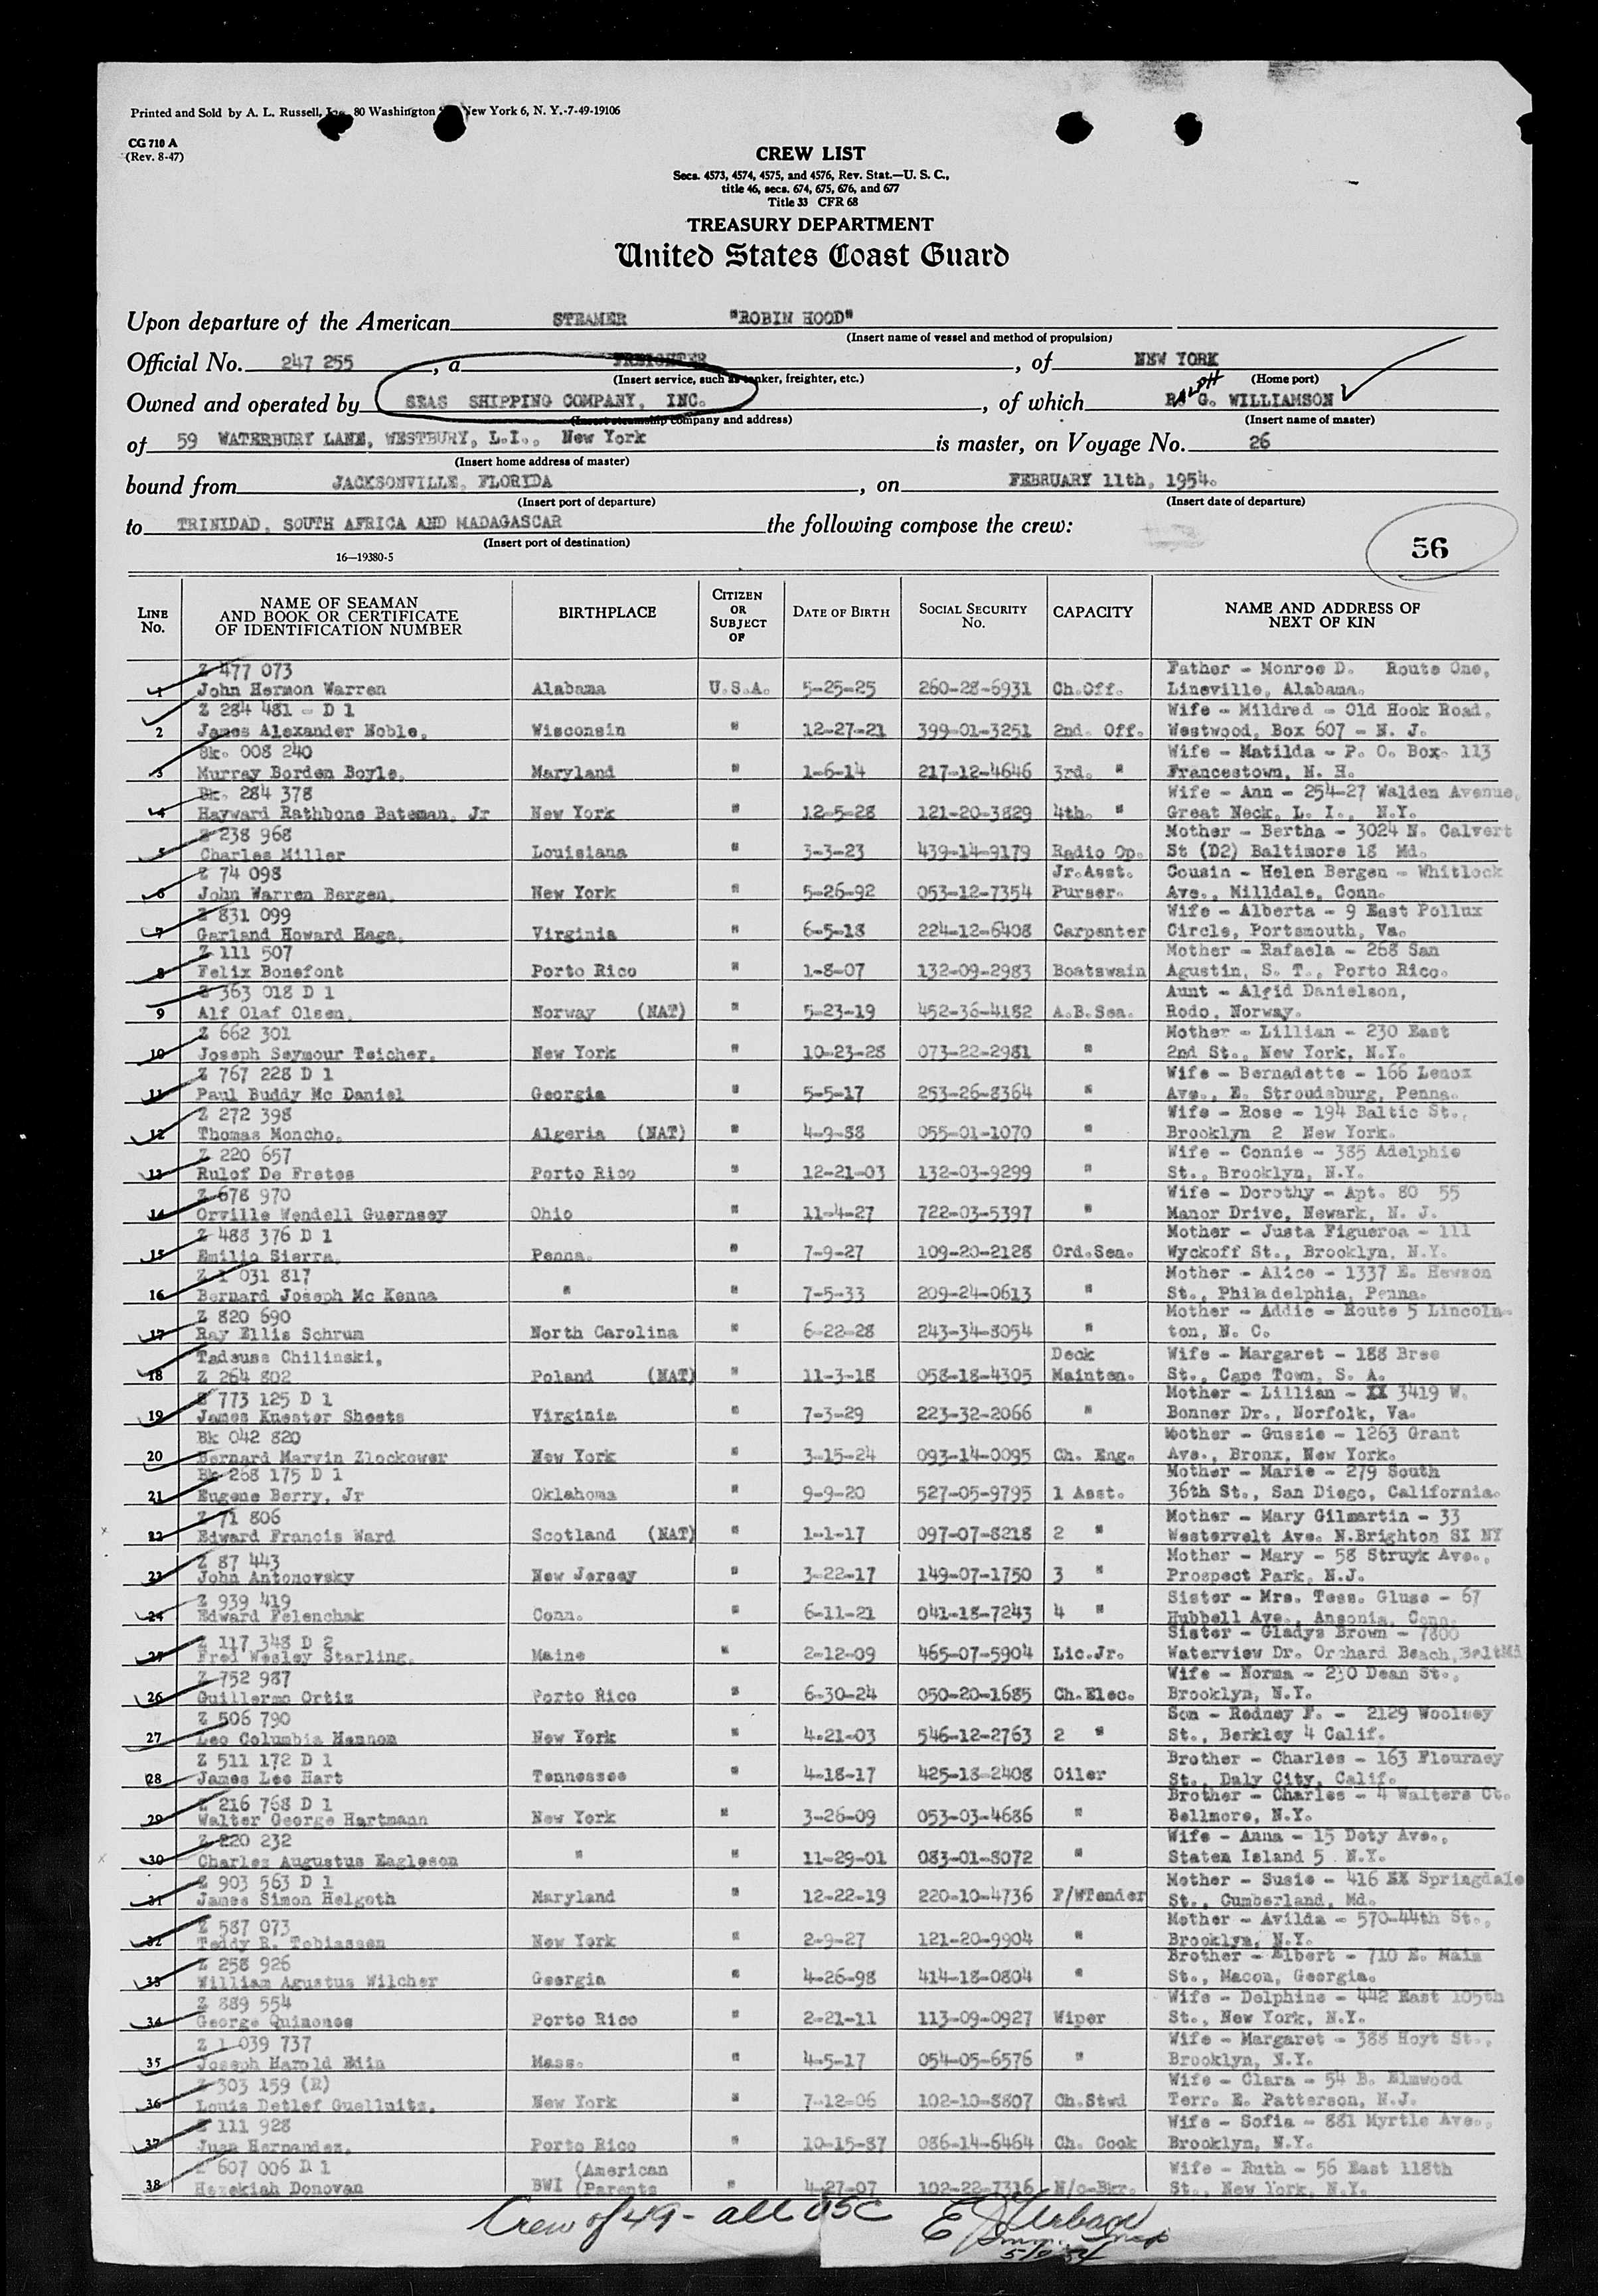 Printed and Sold by A. L. Russell, Inc. 80 Washington New York 6, N. Y.-7-49-19106
CG 710 A
(Rev. 8-47)
CREW LIST
Secs. 4573, 4574, 4575, and 4576, Rev. Stat.—U. S. C.,
title 46, secs. 674, 675, 676, and 677
Title 33 CFR 68
TREASURY DEPARTMENT
United States Coast Guard
Upon departure of the American STEAMER "ROBIN HOOD"
(Insert name of vessel and method of propulsion)
Official No. 247 255, a FREIGHTER, of NEW YORK
(Insert service, such as tanker, freighter, etc.) (Home port)
RALPH
Owned and operated by SEAS SHIPPING COMPANY, INC., of which R. G. WILLIAMSON
(Insert steamship company and address) (Insert name of master)
of 59 WATERBURY LANE, WESTBURY, L.I., New York is master, on Voyage No. 26
(Insert home address of master)
bound from JACKSONVILLE, FLORIDA, on FEBRUARY 11th, 1954.
(Insert port of departure) (Insert date of departure)
to TRINIDAD, SOUTH AFRICA AND MADAGASCAR the following compose the crew:
(Insert port of destination)
16—19380-5
56
LINE No. NAME OF SEAMAN AND BOOK OR CERTIFICATE OF IDENTIFICATION NUMBER BIRTHPLACE CITIZEN OR SUBJECT OF DATE OF BIRTH SOCIAL SECURITY No. CAPACITY NAME AND ADDRESS OF NEXT OF KIN
Z 477 073 Father - Monroe D. Route One,
1 John Hermon Warren Alabama U.S.A. 5-25-25 260-28-6931 Ch.Off. Lineville, Alabama.
Z 284 481 - D 1 Wife - Mildred - Old Hook Road,
2 James Alexander Noble, Wisconsin " 12-27-21 399-01-3251 2nd. Off. Westwood, Box 607 - N. J.
Bk. 008 240 Wife - Matilda - P. O. Box 113
3 Murray Borden Boyle, Maryland " 1-6-14 217-12-4646 3rd. " Francestown, N. H.
Bk. 284 378 Wife - Ann - 254-27 Walden Avenue,
4 Hayward Rathbone Bateman, Jr New York " 12-5-28 121-20-3829 4th. " Great Neck, L. I., N.Y.
Z 238 968 Mother - Bertha - 3024 N. Calvert
5 Charles Miller Louisiana " 3-3-23 439-14-9179 Radio Op. St (D2) Baltimore 18 Md.
Z 74 098 Jr.Asst. Cousin - Helen Bergen - Whitlock
6 John Warren Bergen, New York " 5-26-92 053-12-7354 Purser. Ave., Milldale, Conn.
Z 831 099 Wife - Alberta - 9 East Pollux
7 Garland Howard Haga, Virginia " 6-5-18 224-12-6408 Carpenter Circle, Portsmouth, Va.
Z 111 507 Mother - Rafaela - 268 San
8 Felix Bonefont Porto Rico " 1-8-07 132-09-2983 Boatswain Agustin, S. T., Porto Rico.
Z 363 018 D 1 Aunt - Alfid Danielson,
9 Alf Olaf Olsen, Norway (NAT) " 5-23-19 452-36-4182 A.B.Sea. Rodo, Norway.
Z 662 301 Mother - Lillian - 230 East
10 Joseph Seymour Teicher, New York " 10-23-28 073-22-2981 " 2nd St., New York, N.Y.
Z 767 228 D 1 Wife - Bernadette - 166 Lenox
11 Paul Buddy Mc Daniel Georgia " 5-5-17 253-26-8364 " Ave., E. Stroudsburg, Penna.
Z 272 398 Wife - Rose - 194 Baltic St.,
12 Thomas Moncho, Algeria (NAT) " 4-9-88 055-01-1070 " Brooklyn 2 New York.
Z 220 657 Wife - Connie - 385 Adelphie
13 Rulof De Fretes Porto Rico " 12-21-03 132-03-9299 " St., Brooklyn, N.Y.
Z 678 970 Wife - Dorothy - Apt. 80 55
14 Orville Wendell Guernsey Ohio " 11-4-27 722-03-5397 " Manor Drive, Newark, N. J.
Z 488 376 D 1 Mother - Justa Figueroa - 111
15 Emilio Sierra, Penna. " 7-9-27 109-20-2128 Ord.Sea. Wyckoff St., Brooklyn, N.Y.
Z 1 031 817 Mother - Alice - 1337 E. Hewson
16 Bernard Joseph Mc Kenna " " 7-5-33 209-24-0613 " St., Philadelphia, Penna.
Z 820 690 Mother - Addie - Route 5 Lincoln-
17 Ray Ellis Schrum North Carolina " 6-22-28 243-34-8054 " ton, N. C.
Tadeusz Chilinski, Deck Wife - Margaret - 188 Bree
18 Z 264 802 Poland (NAT) " 11-3-18 058-18-4305 Mainten. St., Cape Town, S. A.
Z 773 125 D 1 Mother - Lillian - XX 3419 W.
19 James Kuester Sheets Virginia " 7-3-29 223-32-2066 " Bonner Dr., Norfolk, Va.
Bk 042 820 Mother - Gussie - 1263 Grant
20 Bernard Marvin Zlockower New York " 3-15-24 093-14-0095 Ch. Eng. Ave., Bronx, New York.
Bk 268 175 D 1 Mother - Marie - 279 South
21 Eugene Berry, Jr Oklahoma " 9-9-20 527-05-9795 1 Asst. 36th St., San Diego, California.
Z 71 806 Mother - Mary Gilmartin - 33
22 Edward Francis Ward Scotland (NAT) " 1-1-17 097-07-8218 2 " Westervelt Ave. N.Brighton SI NY
Z 87 443 Mother - Mary - 58 Struyk Ave.,
23 John Antonovsky New Jersey " 3-22-17 149-07-1750 3 " Prospect Park, N.J.
Z 939 419 Sister - Mrs. Tess. Gluse - 67
24 Edward Felenchak Conn. " 6-11-21 041-18-7243 4 " Hubbell Ave., Ansonia, Conn.
Z 117 348 D 2 Sister - Gladys Brown - 7800
25 Fred Wesley Starling, Maine " 2-12-09 465-07-5904 Lic.Jr. Waterview Dr. Orchard Beach, BaltMd
Z 752 987 Wife - Norma - 230 Dean St.,
26 Guillermo Ortiz Porto Rico " 6-30-24 050-20-1685 Ch.Elec. Brooklyn, N.Y.
Z 506 790 Son - Rodney F. - 2129 Woolsey
27 Leo Columbia Hannon New York " 4-21-03 546-12-2763 2 " St., Berkley 4 Calif.
Z 511 172 D 1 Brother - Charles - 163 Flourney
28 James Lee Hart Tennessee " 4-18-17 425-18-2408 Oiler St., Daly City, Calif.
Z 216 768 D 1 Brother - Charles - 4 Walters Ct.
29 Walter George Hartmann New York " 3-26-09 053-03-4686 " Bellmore, N.Y.
Z 220 232 Wife - Anna - 15 Doty Ave.,
30 Charles Augustus Eagleson " " 11-29-01 083-01-8072 " Staten Island 5 N.Y.
Z 903 563 D 1 Mother - Susie - 416 XX Springdale
31 James Simon Helgoth Maryland " 12-22-19 220-10-4736 F/WTender St., Cumberland, Md.
Z 587 073 Mother - Avilda - 570-44th St.,
32 Teddy R. Tobiassen New York " 2-9-27 121-20-9904 " Brooklyn, N.Y.
Z 258 926 Brother - Elbert - 710 E. Main
33 William Agustus Wilcher Georgia " 4-26-98 414-18-0804 " St., Macon, Georgia.
Z 889 554 Wife - Delphine - 442 East 105th
34 George Quinones Porto Rico " 2-21-11 113-09-0927 Wiper St., New York, N.Y.
Z 1 039 737 Wife - Margaret - 388 Hoyt St.,
35 Joseph Harold Edin Mass. " 4-5-17 054-05-6576 " Brooklyn, N.Y.
Z 303 159 (R) Wife - Clara - 54 B. Elmwood
36 Louis Detlef Guellnitz, New York " 7-12-06 102-10-8807 Ch.Stwd Terr. E. Patterson, N.J.
Z 111 928 Wife - Sofia - 881 Myrtle Ave.,
37 Juan Hernandez, Porto Rico " 10-15-87 086-14-6464 Ch. Cook Brooklyn, N.Y.
Z 607 006 D 1 (American Wife - Ruth - 56 East 118th
38 Hezekiah Donovan BWI (Parents " 4-27-07 102-22-7316 N/c-Bkr. St., New York, N.Y.
Crew of 49 - all USC E J Urban
Imm. Insp